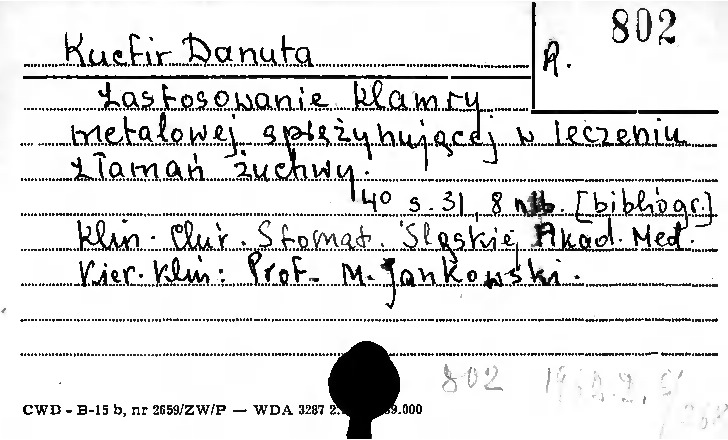 802
Kucfir Danuta
A.
Zastosowanie klamry
metalowej sprężynującej w leczeniu
złamań żuchwy.
4° s. 31, 8 nlb. [bibliogr.]
Klin. Chir. Stomat. Śląskiej Akad. Med.
Kier. Klin: Prof. M. Jankowski.
802
CWD - B-15 b, nr 2659/ZW/P — WDA 3287 69.000